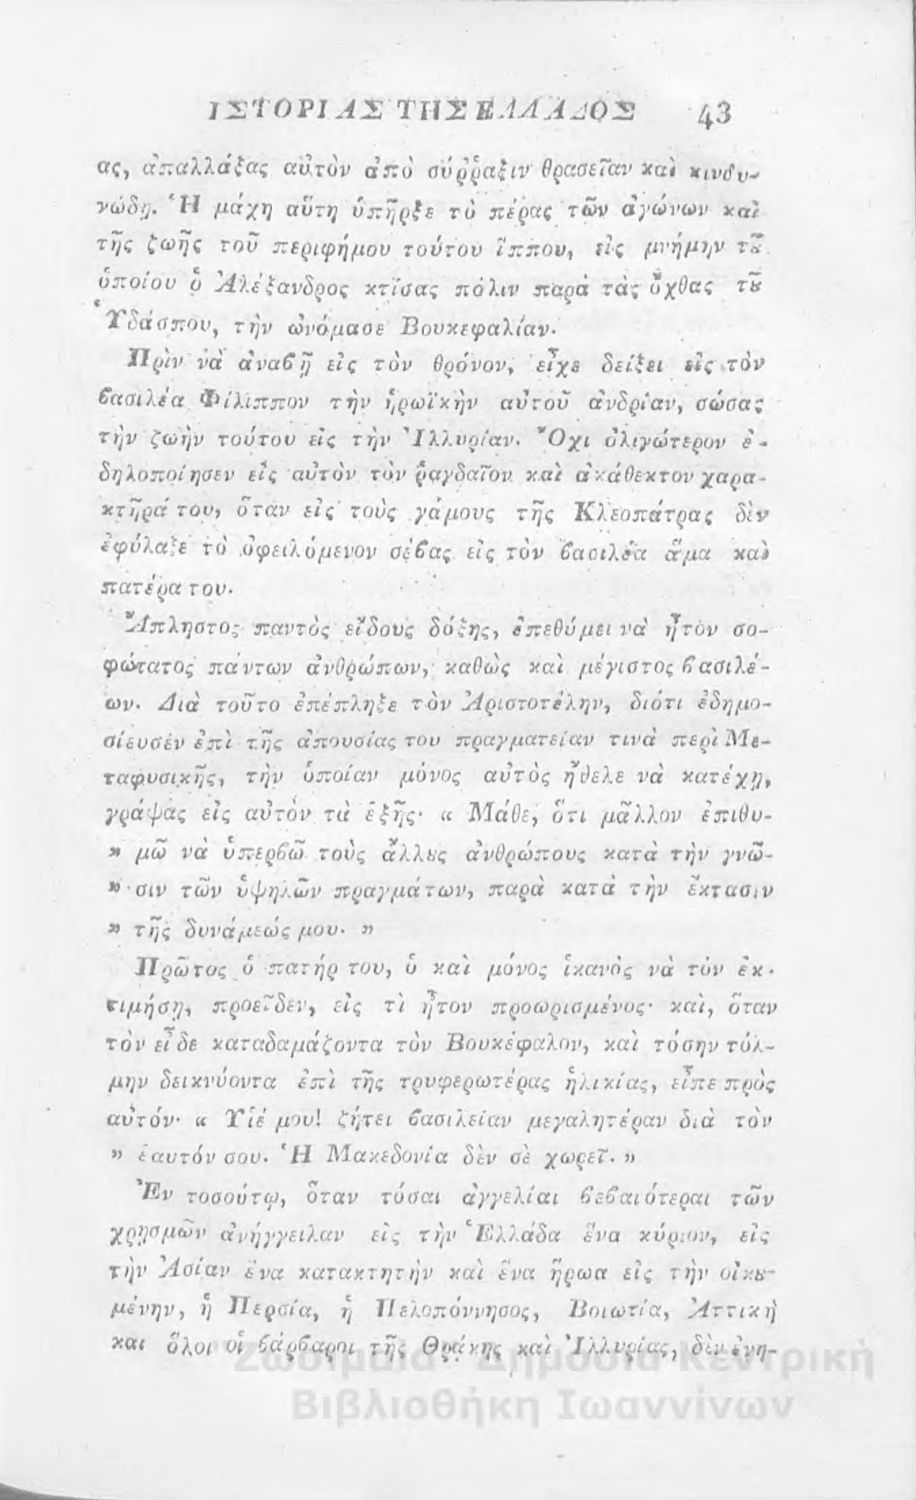 ΙΣΤΟΡΙΑΣ ΤΗΣ ΕΛΛΑΔΟΣ 43
ας, ἀπαλλάξας αὐτὸν ἀπὸ σύῤῥαξιν θρασεῖαν καὶ κινδυ-
νώδη. Ἡ μάχη αὕτη ὑπῆρξε τὸ πέρας τῶν ἀγώνων καὶ
τῆς ζωῆς τοῦ περιφήμου τούτου ἵππου, εἰς μνήμην τȣ͂
ὁποίου ὁ Ἀλέξανδρος κτίσας πόλιν παρὰ τὰς ὄχθας τȣ͂
Ὑδάσπου, τὴν ὠνόμασε Βουκεφαλίαν.
Πρὶν νὰ ἀναϐῇ εἰς τὸν θρόνον, εἶχε δείξει εἰς τὸν
ϐασιλέα Φίλιππον τὴν ἡρωϊκὴν αὐτοῦ ἀνδρίαν, σώσας
τὴν ζωὴν τούτου εἰς τὴν Ἰλλυρίαν. Ὄχι ὀλιγώτερον ἐ-
δηλοποίησεν εἰς αὐτὸν τὸν ῥαγδαῖον καὶ ἀκάθεκτον χαρα-
κτῆρά του, ὅταν εἰς τοὺς γάμους τῆς Κλεοπάτρας δὲν
ἐφύλαξε τὸ ὀφειλόμενον σέϐας εἰς τὸν ϐασιλέα ἅμα καὶ
πατέρα του.
Ἄπληστος παντὸς εἴδους δόξης, ἐπεθύμει νὰ ἦτον σο-
φώτατος πάντων ἀνθρώπων, καθὼς καὶ μέγιστος ϐασιλέ-
ων. Διὰ τοῦτο ἐπέπληξε τὸν Ἀριστοτέλην, διότι ἐδημο-
σίευσέν ἐπὶ τῆς ἀπουσίας του πραγματείαν τινὰ περὶ Με-
ταφυσικῆς, τὴν ὁποίαν μόνος αὐτὸς ἤθελε νὰ κατέχῃ,
γράψας εἰς αὐτὸν τὰ ἑξῆς· « Μάθε, ὅτι μᾶλλον ἐπιθυ-
» μῶ νὰ ὑπερϐῶ τοὺς ἄλλȣς ἀνθρώπους κατὰ τὴν γνῶ-
» σιν τῶν ὑψηλῶν πραγμάτων, παρὰ κατὰ τὴν ἔκτασιν
» τῆς δυνάμεώς μου. »
Πρῶτος ὁ πατήρ του, ὁ καὶ μόνος ἱκανὸς νὰ τὸν ἐκ-
τιμήσῃ, προεῖδεν, εἰς τὶ ἦτον προωρισμένος· καὶ, ὅταν
τὸν εἶδε καταδαμάζοντα τὸν Βουκέφαλον, καὶ τόσην τόλ-
μην δεικνύοντα ἐπὶ τῆς τρυφερωτέρας ἡλικίας, εἶπε πρὸς
αὐτόν· « Υἱέ μου! ζήτει ϐασιλείαν μεγαλητέραν διὰ τὸν
» ἑαυτόν σου. Ἡ Μακεδονία δὲν σὲ χωρεῖ. »
Ἐν τοσούτῳ, ὅταν τόσαι ἀγγελίαι ϐεϐαιότεραι τῶν
χρησμῶν ἀνήγγειλαν εἰς τὴν Ἑλλάδα ἕνα κύριον, εἰς
τὴν Ἀσίαν ἕνα κατακτητὴν καὶ ἕνα ἥρωα εἰς τὴν οἰκȣ-
μένην, ἡ Περσία, ἡ Πελοπόννησος, Βοιωτία, Ἀττικὴ
καὶ ὅλοι οἱ ϐάρϐαροι τῆς Θρᾴκης καὶ Ἰλλυρίας, δὲν ἐνη-
Ζωσιμαία Δημόσια Κεντρική
Βιβλιοθήκη Ιωαννίνων